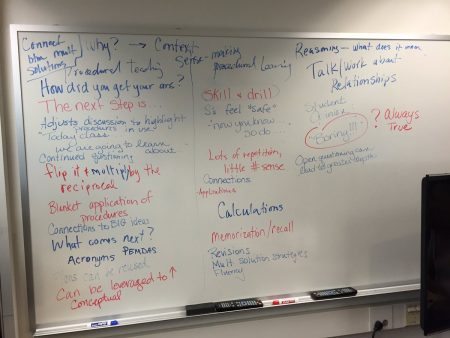 Connect
btw mult
solutions
/ Why? → Context
Procedural Teaching
How did you get your ans?
The next step is...
Adjusts discussion to highlight
procedures in use
"Today class
we are going to learn about
Continued questioning
Flip it & multiply by the
reciprocal
Blanket application of
procedures
Connections to BIG ideas
What comes next?
Acronyms PEMDAS
can be revised
Can be leveraged to ↑
conceptual
Sense making
procedural Learning
Skill & drill
S's feel "safe"
"now you know...
so do...
Lots of repetition,
little # sense
Connections
Applications
Calculations
Memorization/recall
Revisions
Mult solution strategies
Fluency
Reasoning - what does it mean
Talk/Work about
Relationships
Student
Boring!!!
? Always
True
Open questioning can
lead to